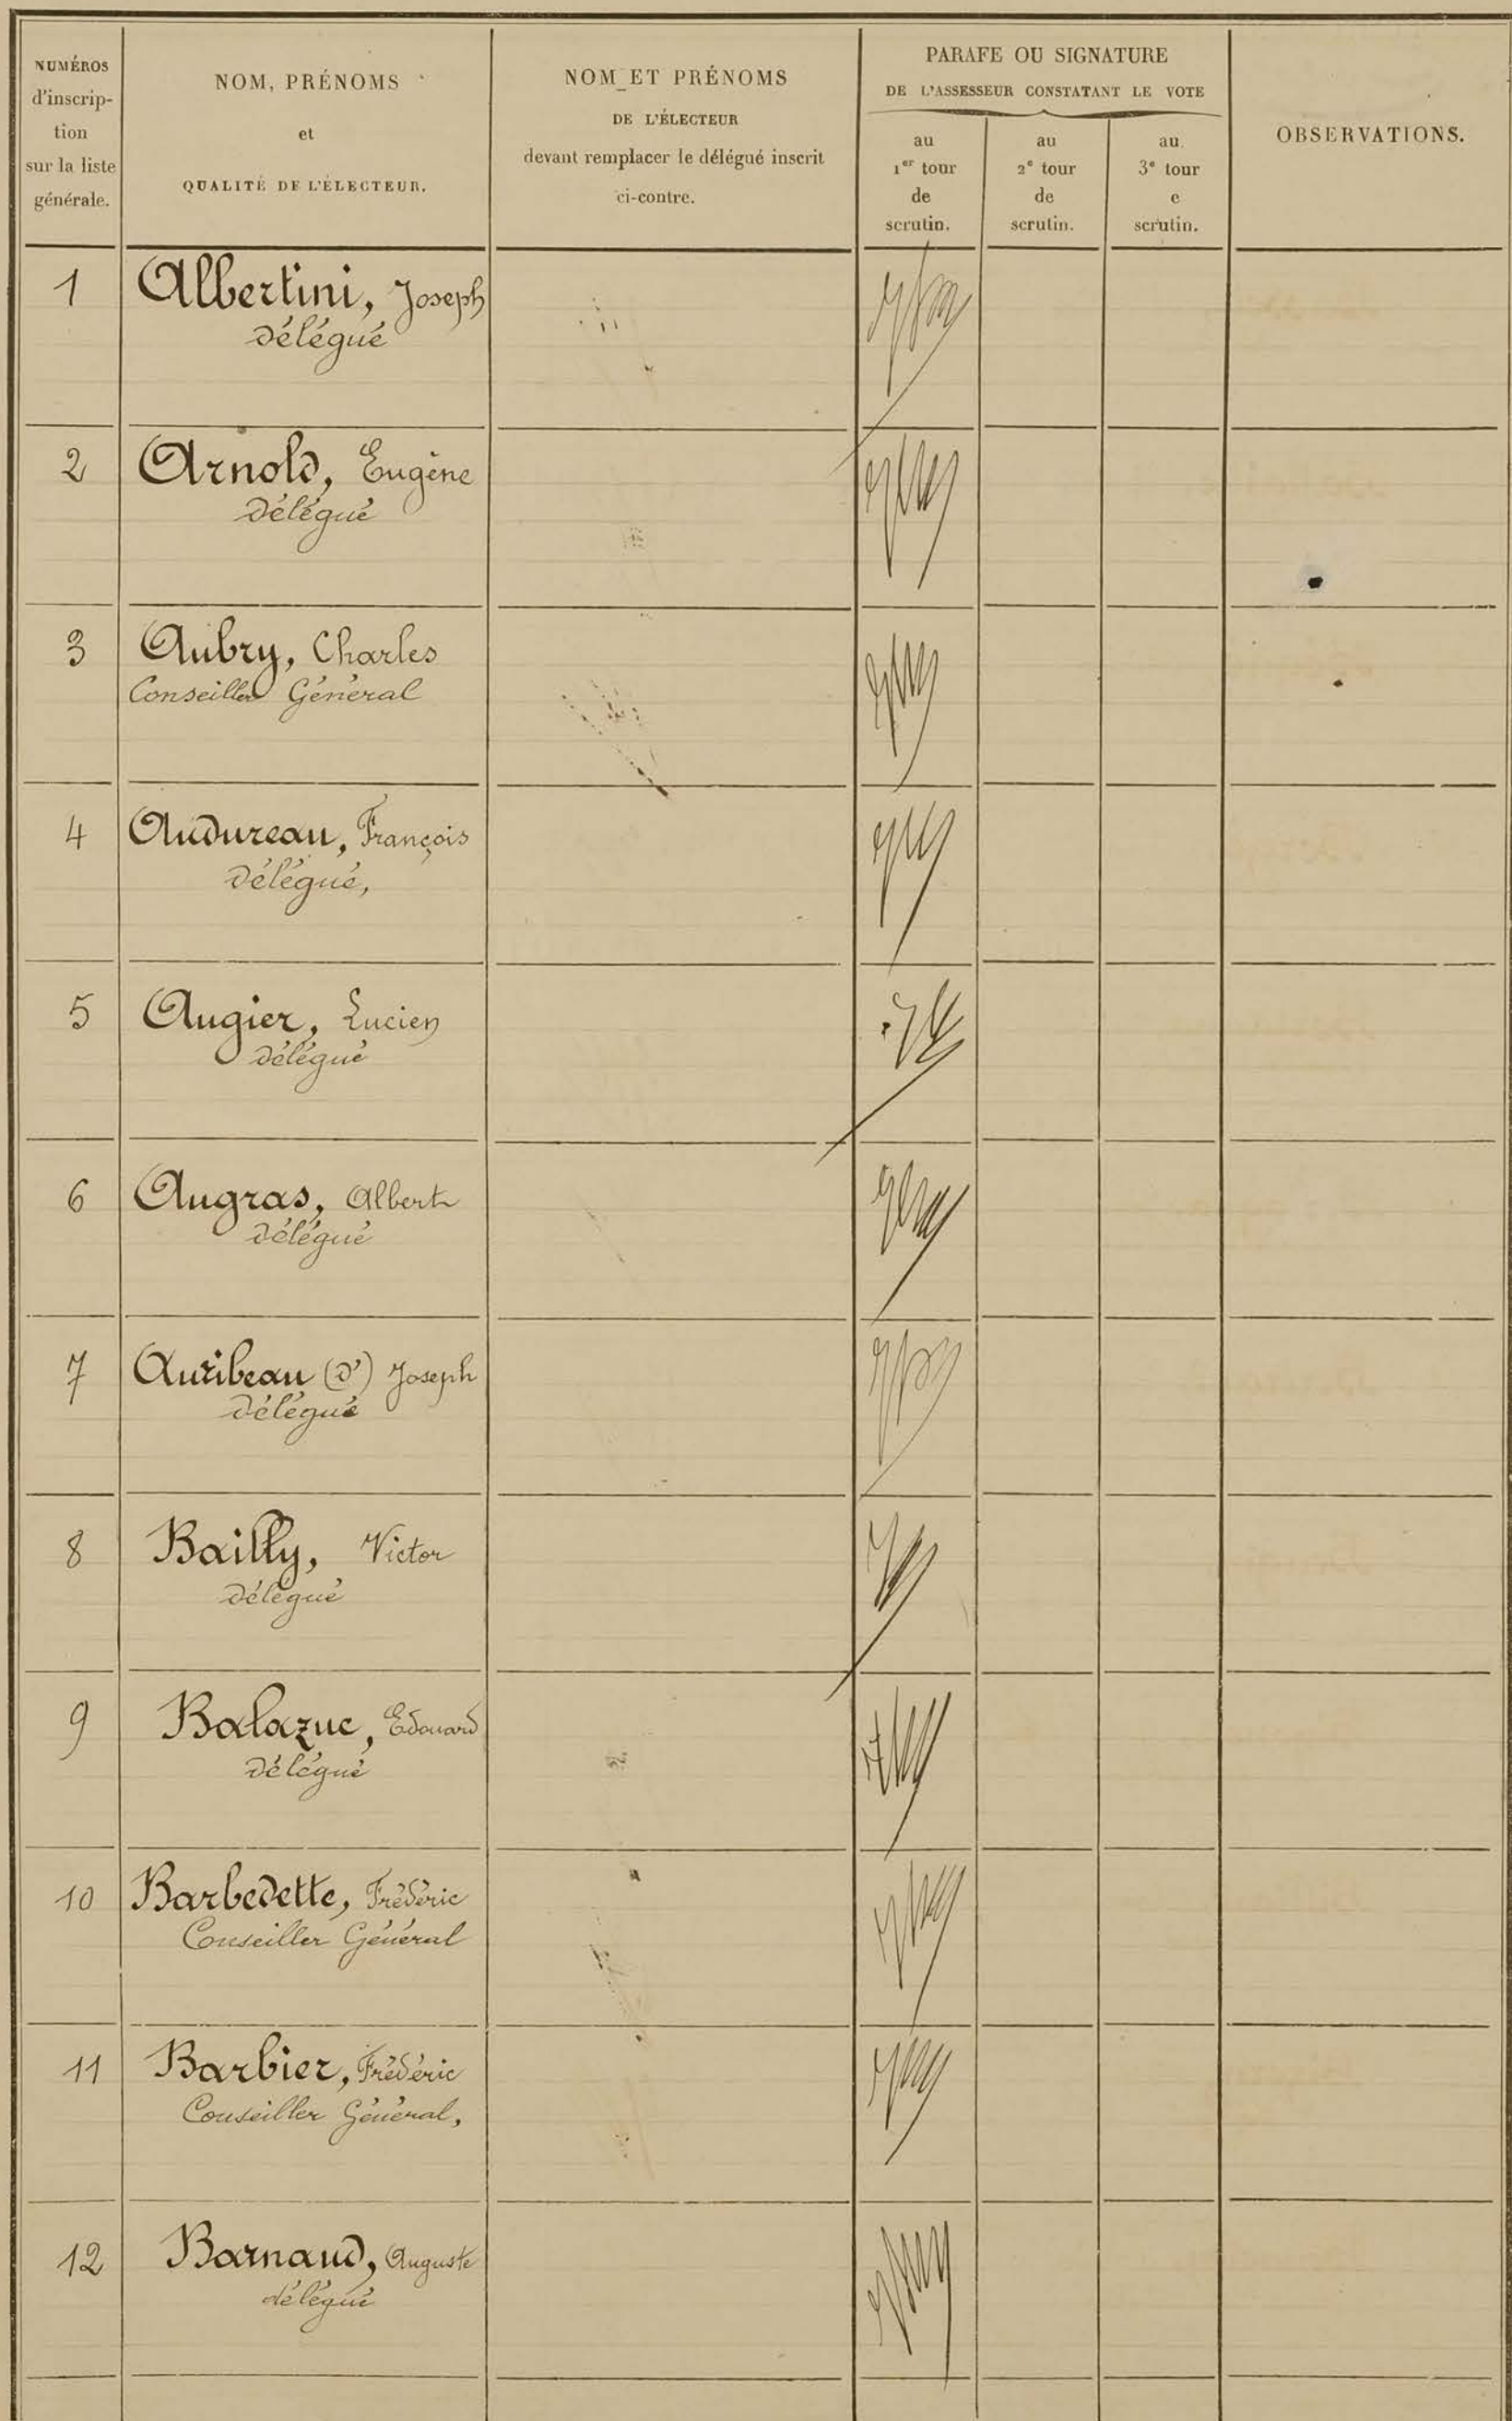 NUMÉROS
d'inscrip-
tion
sur la liste
générale.
NOM, PRÉNOMS
et
QUALITÉ DE L'ÉLECTEUR.
NOM ET PRÉNOMS
DE L'ÉLECTEUR
devant remplacer le délégué inscrit
ci-contre.
PARAFE OU SIGNATURE
DE L'ASSESSEUR CONSTATANT LE VOTE
au
1er tour
de
scrutin.
au
2e tour
de
scrutin.
au
3e tour
e
scrutin.
OBSERVATIONS.
1 Albertini, Joseph
Délégué
2 Arnold, Eugène
Délégué
3 Aubry, Charles
Conseiller Général
4 Audureau, François
Délégué,
5 Augier, Lucien
Délégué
6 Augras, Albert
Délégué
7 Auribeau (d') Joseph
Délégué
8 Bailly, Victor
Délégué
9 Balazuc, Edouard
Délégué
10 Barbedette, Frédéric
Conseiller Général
11 Barbier, Frédéric
Conseiller Général,
12 Barnaud, Auguste
délégué